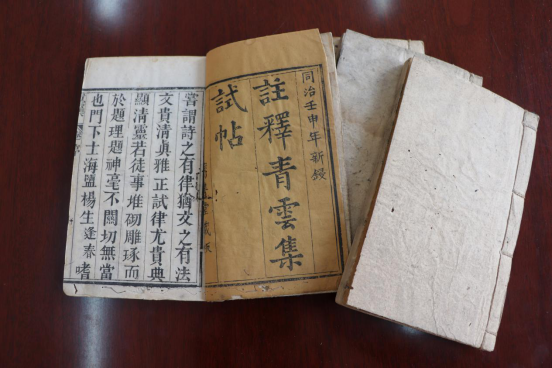 同治壬申年新鐫
註釋青雲集
試帖
藏板
嘗謂詩之有律猶文之有法
文貴清眞雅正試律尤貴典
顯清靈若徒事堆砌雕琢而
於題理題神毫不關切無當
也門下士海鹽楊生逢春嗜